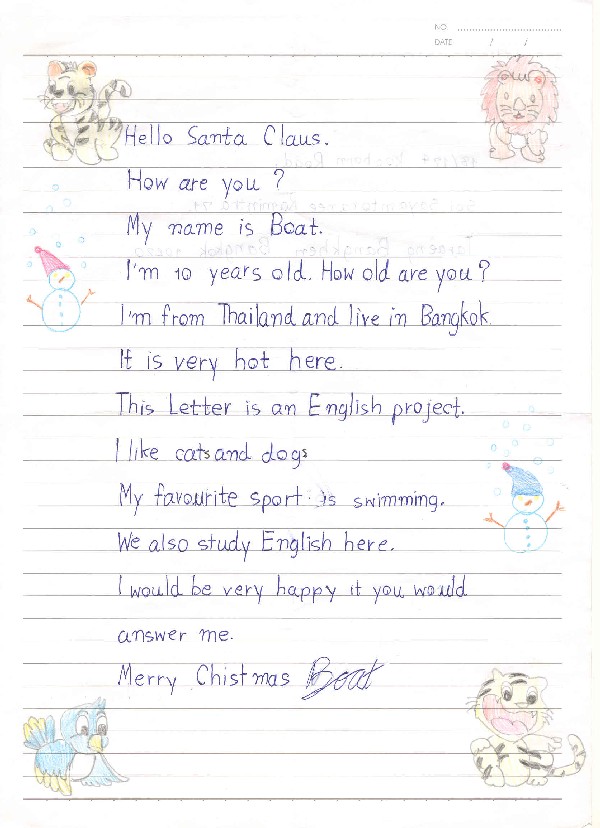 NO.
DATE / /
Hello Santa Claus.
How are you ?
My name is Boat.
I'm 10 years old. How old are you?
I'm from Thailand and live in Bangkok.
It is very hot here.
This Letter is an English project.
I like cats and dogs
My favourite sport is swimming.
We also study English here.
I would be very happy it you would
answer me.
Merry Chistmas Boat